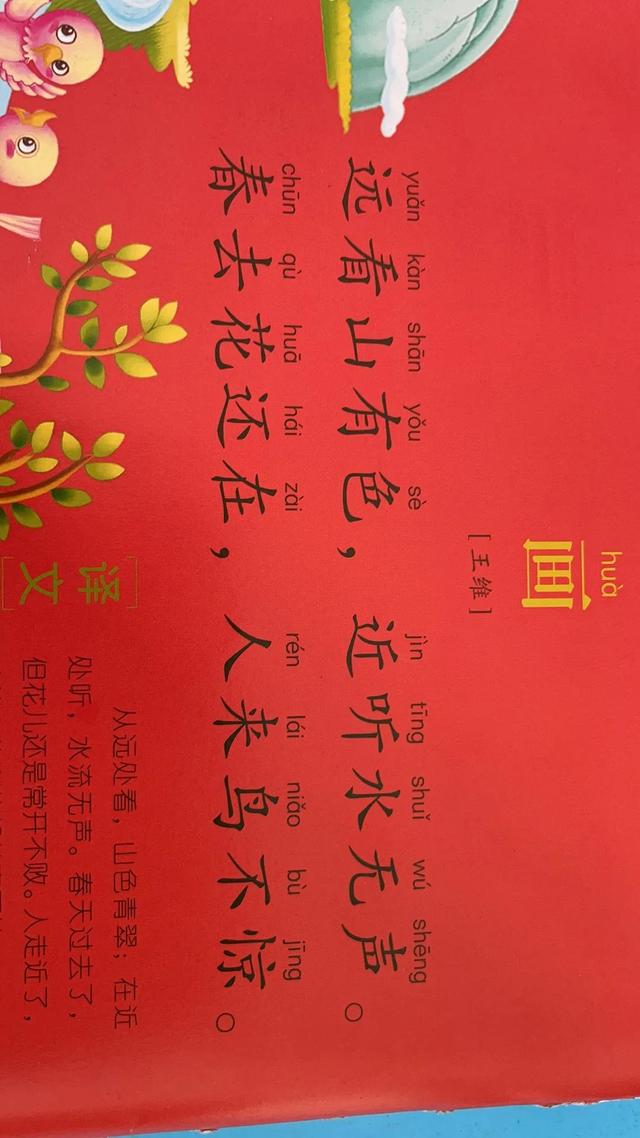 huà
画
[王维]
yuǎn kàn shān yǒu sè jìn tīng shuǐ wú shēng
远看山有色，近听水无声。
chūn qù huā hái zài rén lái niǎo bù jīng
春去花还在，人来鸟不惊。
译文
从远处看，山色青翠；在近
处听，水流无声。春天过去了，
但花儿还是常开不败。人走近了，